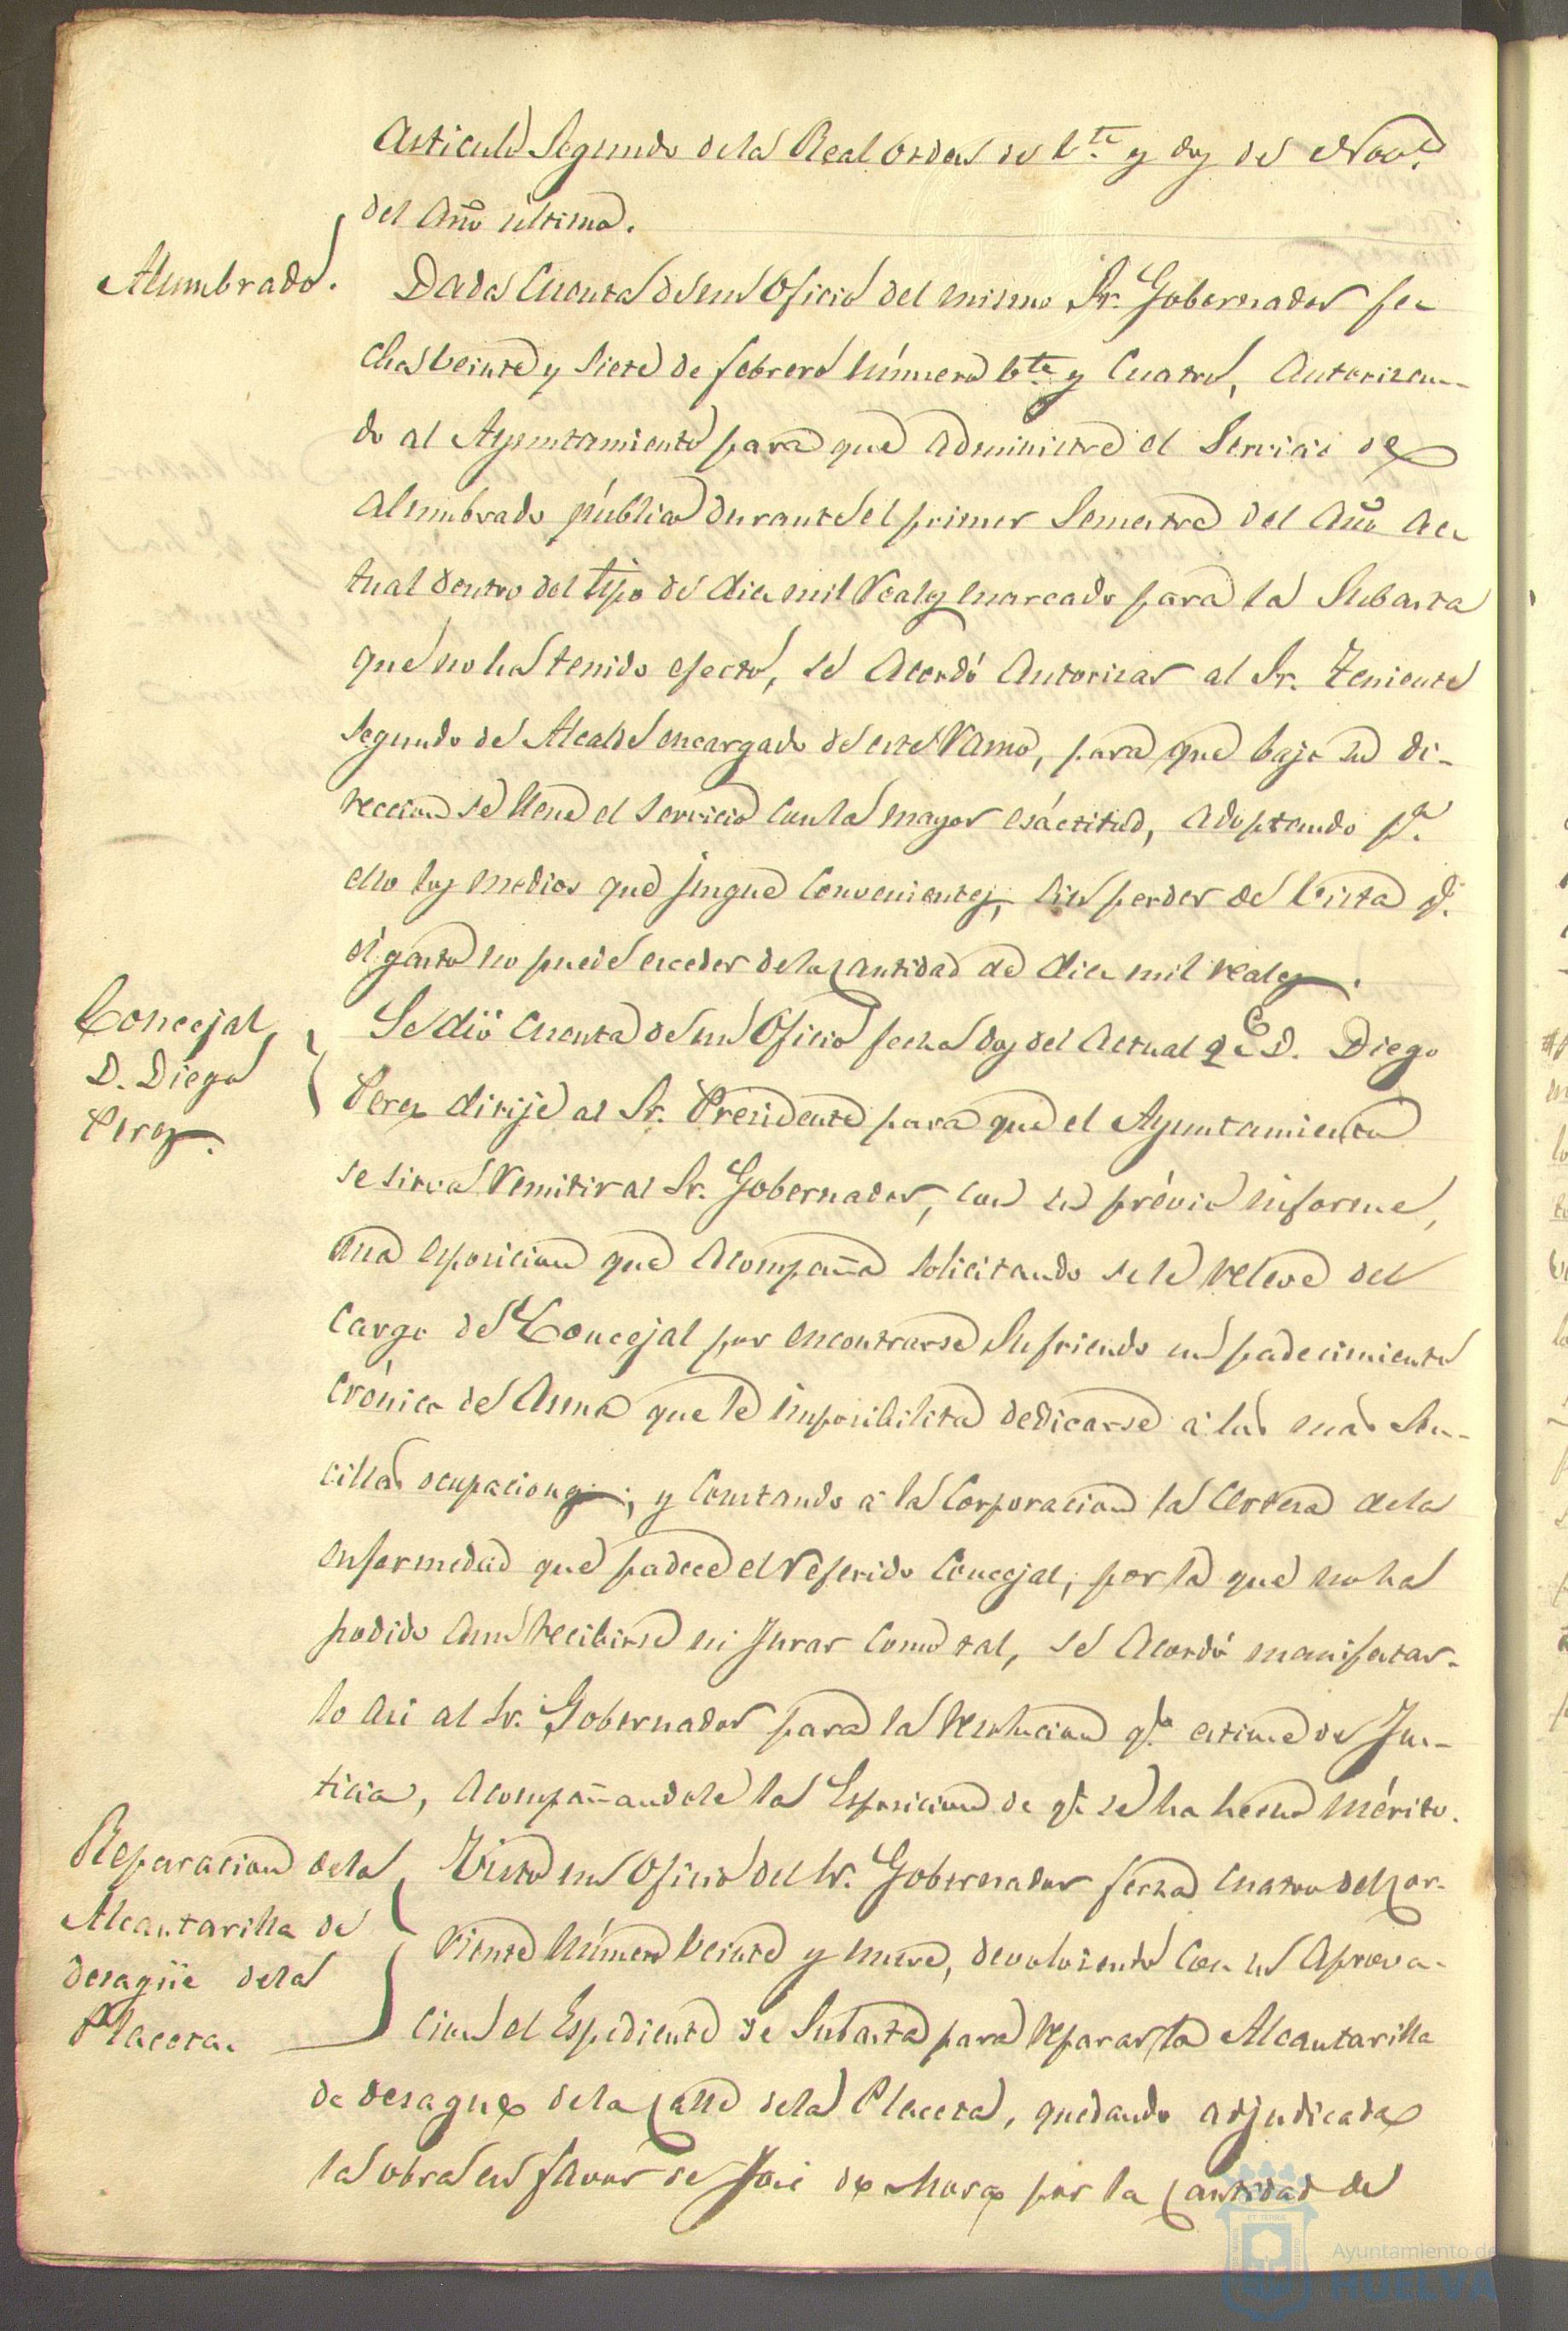 Articulo Segundo de la Real orden de v.te y dos de Nov.e
del Año último.
Alumbrado.
Dada Cuenta de un Oficio del mismo Sr. Gobernador fe
cha veinte y siete de febrero número v.te y Cuatro, Autorizan-
do al Ayuntamiento para que administre el Servicio de
alumbrado público durante el primer Semestre del Año Ac
tual dentro del tipo de diez mil reales marcado para la Subasta
que no ha tenido efecto, se Acordó Autorizar al Sr. Teniente
segundo de Alcalde encargado de este Ramo, para que bajo su di-
reccion se llene el servicio con la mayor esáctitud, adoptando p.a
ello los medios que juzgue Convenientes, sin perder de vista q.e
el gasto no puede exceder de la Cantidad de diez mil reales.
Concejal
D. Diego
Perez.
Se dió Cuenta de un Oficio fecha dos del Actual q.e D. Diego
Perez dirije al Sr. Presidente para que el Ayuntamiento
se sirva Remitir al Sr. Gobernador, con su prévio informe,
una esposicion que Acompaña solicitando se le releve del
Cargo de Concejal por encontrarse Sufriendo un padecimiento
Crónico de Asma que le imposibilita dedicarse á las mas Sen-
cillas ocupaciones; y Constando á la Corporacion la Certeza de la
enfermedad que padece el Referido Concejal, por la que no ha
podido aun recibirse ni Jurar como tal, se Acordó manifestar-
lo asi al Sr. Gobernador para la resolucion q.e estime de Jus-
ticia, Acompañandole la Esposicion de q.e se ha hecho mérito.
Reparacion de la
Alcantarilla de
desagüe de la
Placeta.
Visto un Oficio del Sr. Gobernador fecha cuatro del Cor-
riente número veinte y nueve, devolviendo con su Aprova-
cion el Espediente de Subasta para reparar la Alcantarilla
de desague de la Calle de la Placeta, quedando adjudicada
la obra en favor de José de Mora por la Cantidad de
Ayuntamiento de
HUELVA